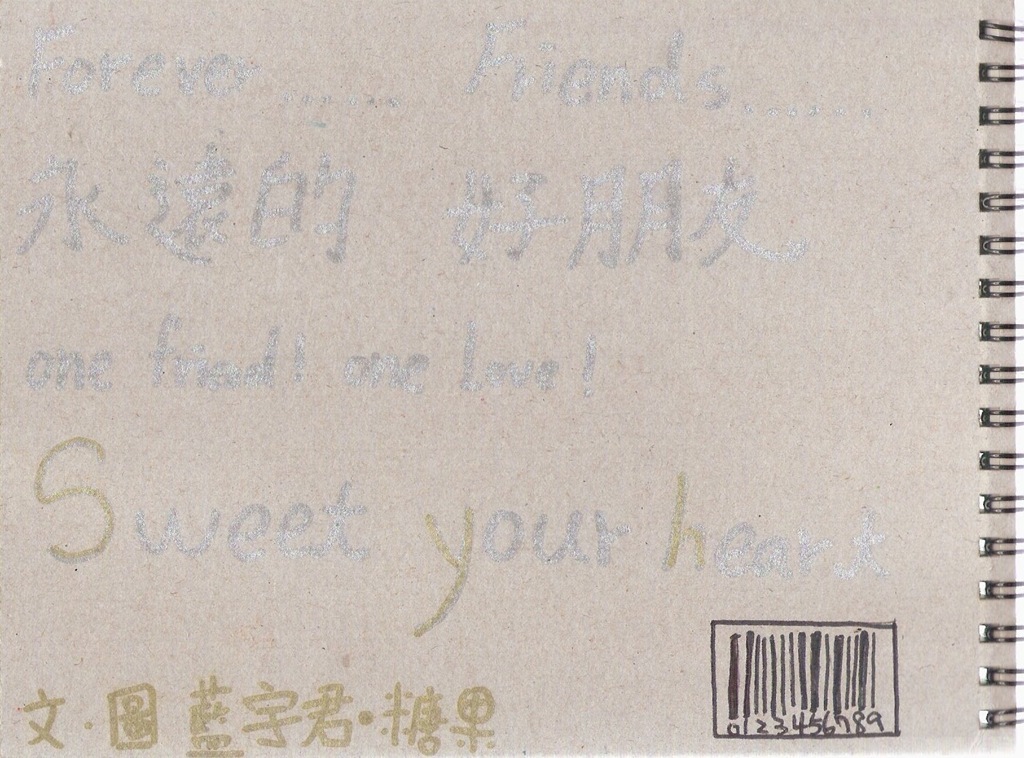 Forever ...... Friends.......
永遠的 好朋友
one friend! one Love!
Sweet your heart
文·圖 藍宇君·糖果
0123456789